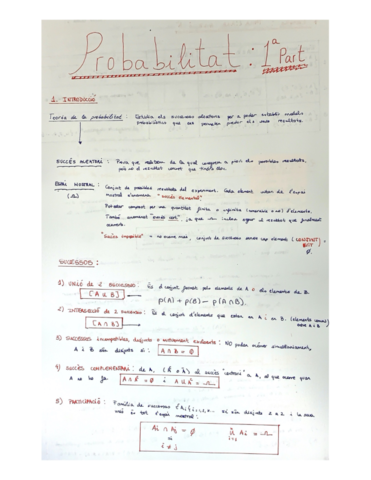 Probabilitat: 1ª Part
1. INTRODUCCIÓ
Teoria de la probabilitat: Estudia els successos aleatoris per a poder establir models
probabilístics que ens permetin predir els seus resultats.
SUCCÉS ALEATORI: de la qual coneixem a priori els possibles resultats,
però no el resultat concret que tindrà lloc.
ESPAI MOSTRAL: Conjunt de possibles resultats del experiment. Cada element de l'espai
(Ω) mostral s'anomena "succés elemental".
Pot estar compost per una quantitat finita o infinita d'elements.
També anomenat "succés cert", ja que inclou el resultat que finalment
"Succés impossible" → conjunt de successos sense cap element (CONJUNT BUIT)
∅.
SUCCESSOS:
1) UNIÓ de 2 successos: És el conjunt format pels elements de A o els elements de B.
[A ∪ B] p(A) + p(B) - p(A ∩ B).
2) INTERSECCIÓ de 2 successos: És el conjunt d'elements que estan en A i en B. (elements comuns
[A ∩ B] entre A i B)
3) SUCCESSOS incompatibles, disjunts o mútuament excloents: NO poden ocórrer simultàniament,
A i B són disjunts si: A ∩ B = ∅
4) SUCCÉS COMPLEMENTARI: de A, és el succés "contrari" a A, al que
A no ho fa. A ∩ Ā = ∅ i A ∪ Ā = Ω
5) PARTICIÓ: Família de successos A₁, són disjunts 2 a 2 i la seva
unió és tot l'espai mostral:
Ai ∩ Aj = ∅ ∪ Ai = Ω
i ≠ j i=1